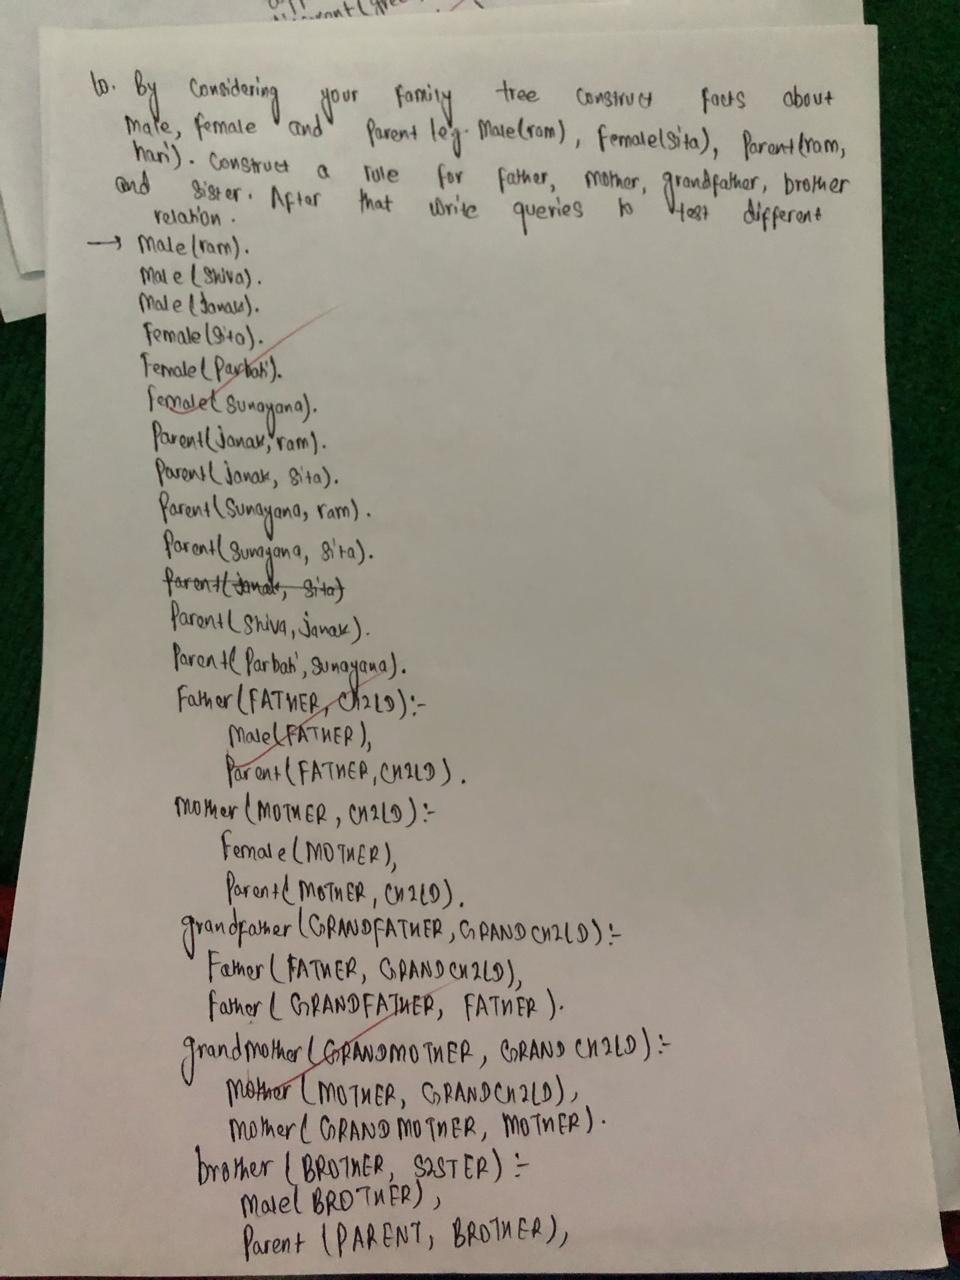 10. By Considering your family tree construct facts about
Male, female and Parent (eg. Male(ram), female(Sita), Parent(ram,
hari). Construct a rule for father, mother, grandfather, brother
and sister. After that write queries to test different
relation.
→ Male(ram).
Male(Shiva).
Male(Janak).
Female(Sita).
Female(Parbati).
Female(Sunayana).
Parent(janak, ram).
Parent(janak, Sita).
Parent(Sunayana, ram).
Parent(Sunayana, Sita).
Parent(Janak, Sita)
Parent(Shiva, janak).
Parent(Parbati, Sunayana).
Father(FATHER, CHILD):-
Male(FATHER),
Parent(FATHER, CHILD).
Mother(MOTHER, CHILD):-
Female(MOTHER),
Parent(MOTHER, CHILD).
grandfather(GRANDFATHER, GRANDCHILD):-
Father(FATHER, GRANDCHILD),
Father(GRANDFATHER, FATHER).
grandmother(GRANDMOTHER, GRANDCHILD):-
Mother(MOTHER, GRANDCHILD),
Mother(GRANDMOTHER, MOTHER).
brother(BROTHER, SISTER):-
Male(BROTHER),
Parent(PARENT, BROTHER),